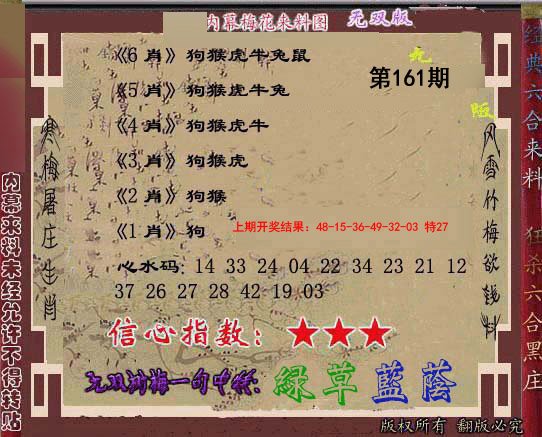 内幕梅花来料图 无双版
《6 肖》狗猴虎牛兔鼠
《5 肖》狗猴虎牛兔
《4 肖》狗猴虎牛
《3 肖》狗猴虎
《2 肖》狗猴
《1 肖》狗
第161期
上期开奖结果：48-15-36-49-32-03 特27
心水码：14 33 24 04 22 34 23 21 12
37 26 27 28 42 19 03
信心指数：★★★
无双树梅一句中特：綠草藍蔭
版权所有 翻版必究
寒梅屠庄生肖
内幕来料未经允许不得转贴
风雪竹梅欲钱料
经典六合来料
狂杀六合黑庄